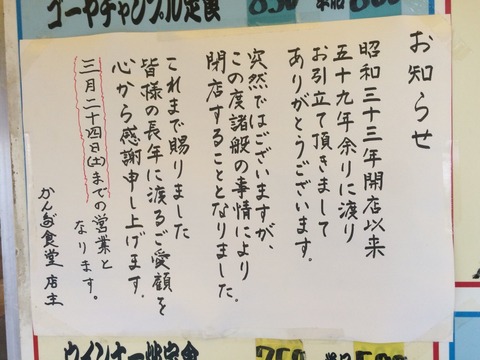 ゴーヤチャンプル定食 850
お知らせ
昭和三十三年開店以来
五十九年余りに渡り
お引立て頂きまして
ありがとうございます。
突然ではございますが、
この度諸般の事情により
閉店することとなりました。
これまで賜りました
皆様の長年に渡るご愛顧を
心から感謝申し上げます。
三月二十四日(土)までの営業と
なります。
かんだ食堂 店主
ウインナー
定食